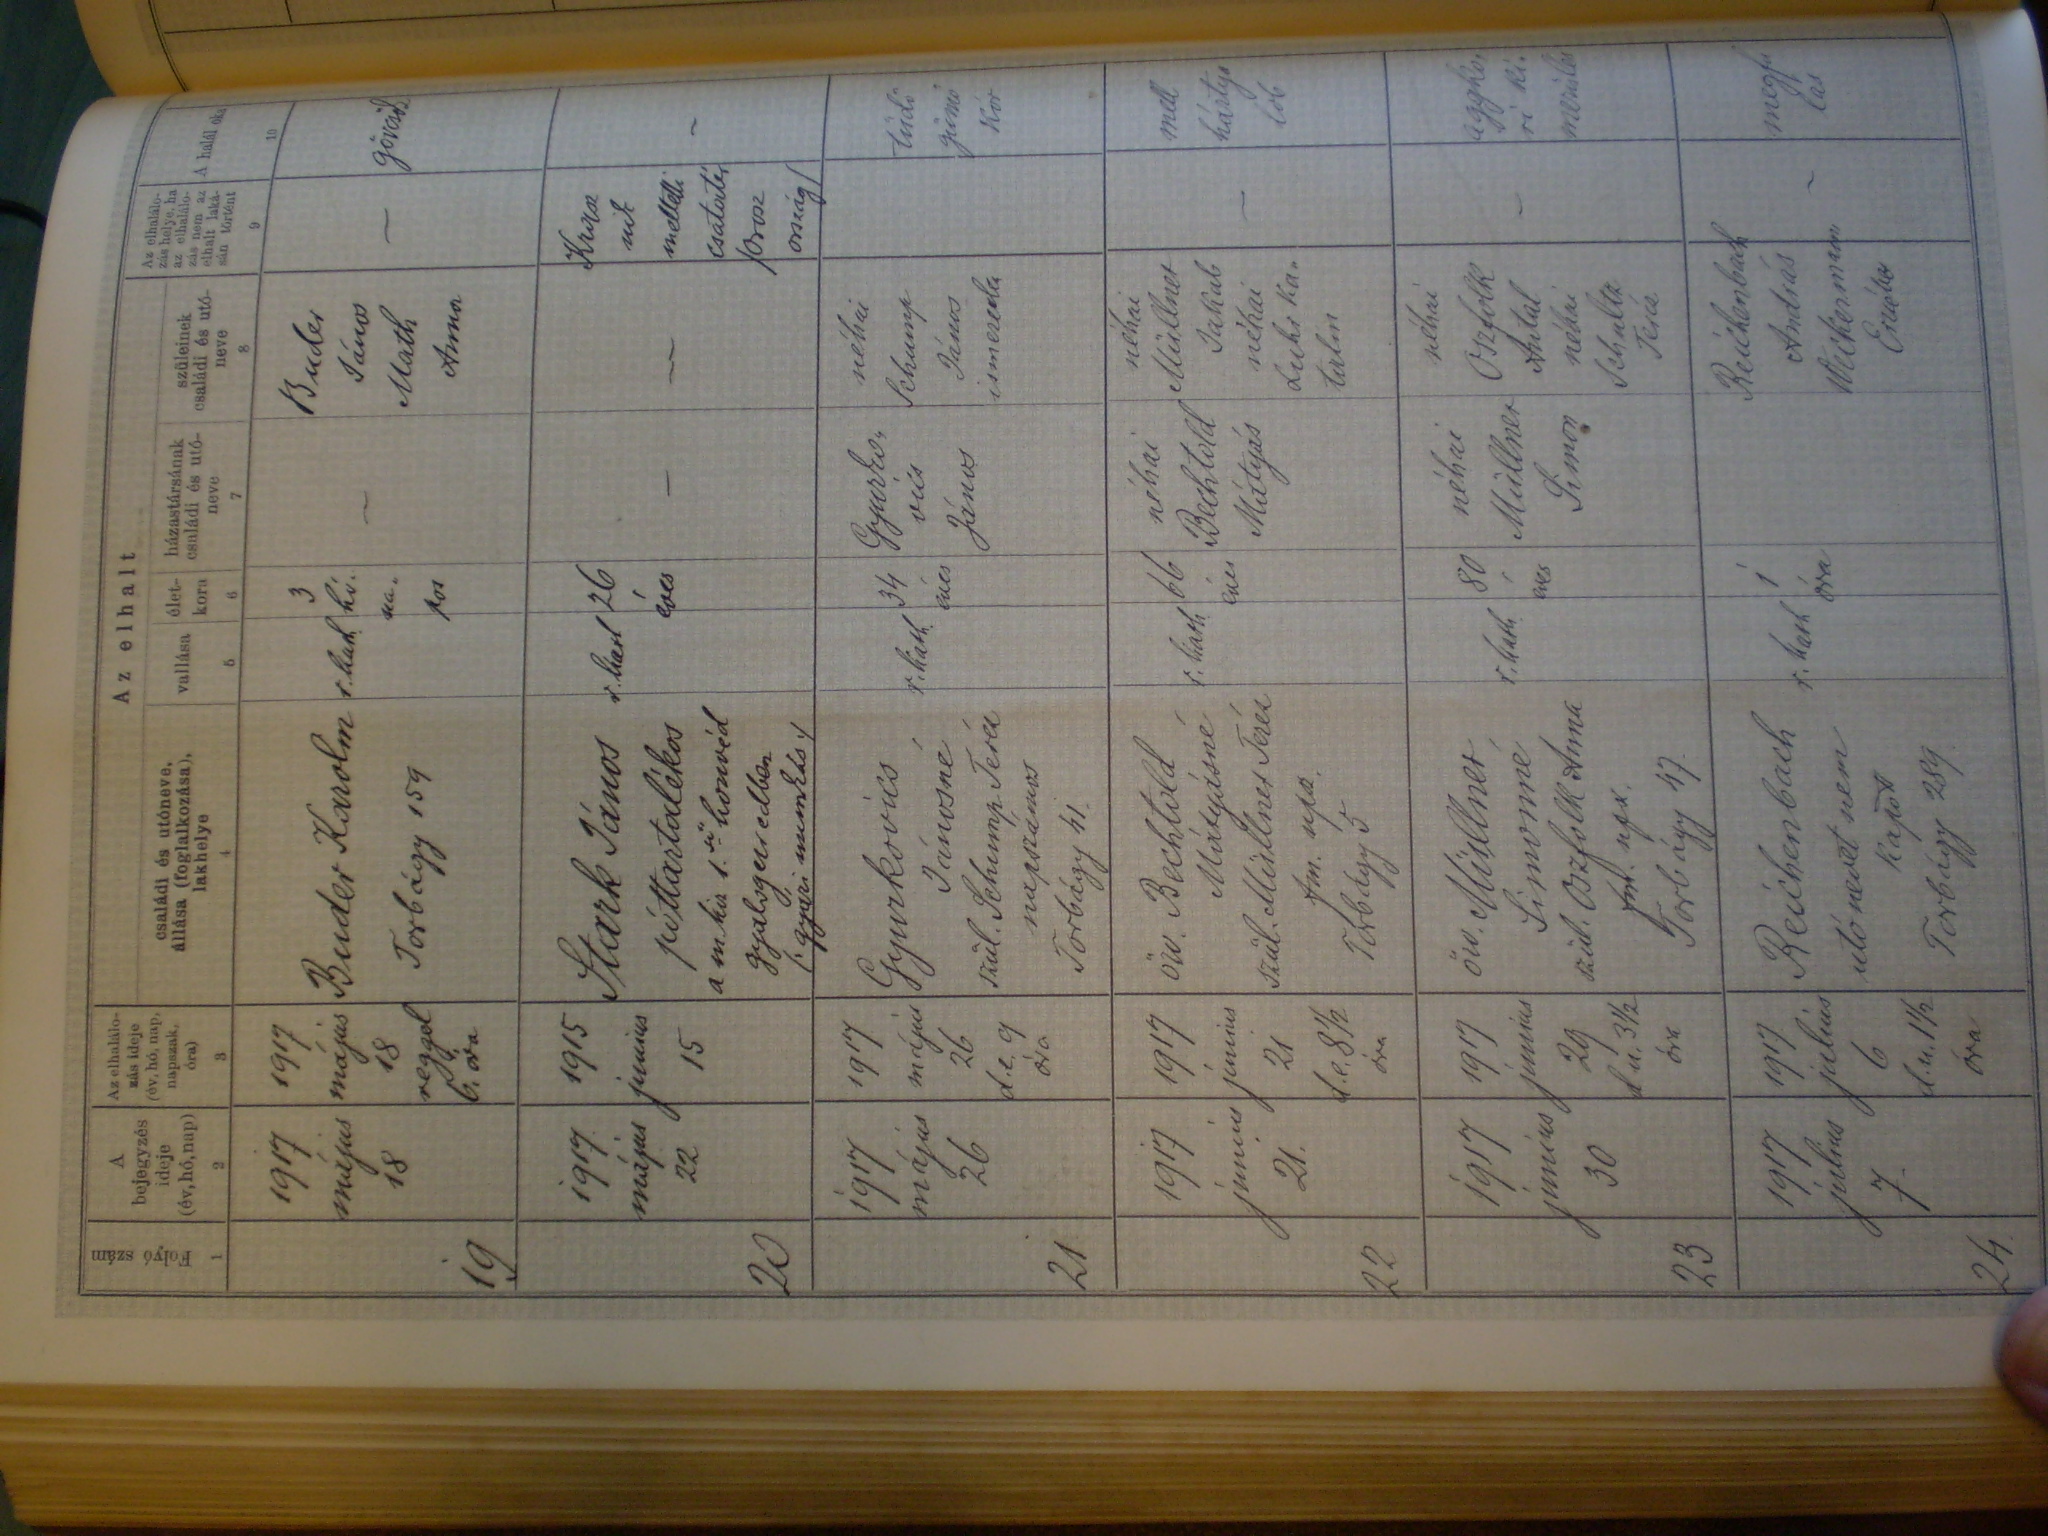 Az elhalt
Folyó szám
A bejegyzés ideje (év, hó, nap)
Az elhalálo-
zás ideje
(év, hó, nap,
napszak,
óra)
családi és utóneve,
állása (foglalkozása),
lakhelye
vallása
élet-
kora
házastársának
családi és utó-
neve
szüleinek
családi és utó-
neve
Az elhalálo-
zás helye, ha
az elhalálo-
zás nem az
elhalt laká-
sán történt
A halál oka
1
2
3
4
5
6
7
8
9
10
19
1917
május
18
1917
május
18
reggel
6. óra
Buder Karolin
Torbágy 159
r. kath
3
hó-
na-
pos
—
Buder
János
Math
Anna
—
görcsök
20
1917.
május
22
1915
junius
15
Stark János
póttartalékos
a m. kir 1.ső honvéd
gyalogezredben
(: gyári munkás :)
r. kath
26
éves
—
—
melletti
csatatér
/orosz
ország/
—
21
1917
május
26
1917
május
26
d. e. 9
óra
Gyurkovics
Jánosné
szül. Schump Teréz
napszámos
Torbágy 41.
r. kath
34
éves
Gyurko-
vics
János
néhai
Schump
János
tüdő
gümő
kór
22
1917
junius
21.
1917
junius
21
d. e. 8½
óra
öw. Bechtold
Mátyásné
szül. Müllner Teréz
fm. npsz.
Torbágy 5
r. kath
66
éves
néhai
Bechtold
Mátyás
néhai
Müllner
Jakab
néhai
Luks Ka-
talin
—
mell
hártya
lob
23
1917
junius
30
1917
junius
29
d. u. 3½
óra
öw. Müllner
Simonné
szül. Oszfolk Anna
fm. npsz.
Torbágy 47.
r. kath
80
éves
néhai
Müllner
Simon
néhai
Oszfolk
Antal
néhai
Schulta
Teréz
—
aggko-
ri ki-
merülés
24.
1917
julius
7.
1917
julius
6
d. u. 1½
óra
Reichenbach
utónevet nem
kapott
Torbágy 289
r. kath
1
óra
Reichenbach
András
Wickermann
Erzsébet
—
megfu
lás